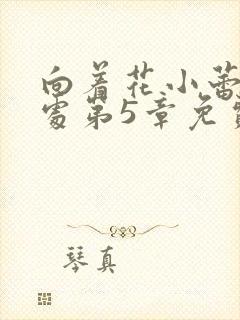 向着花小蕾
处第5章免费
琴真